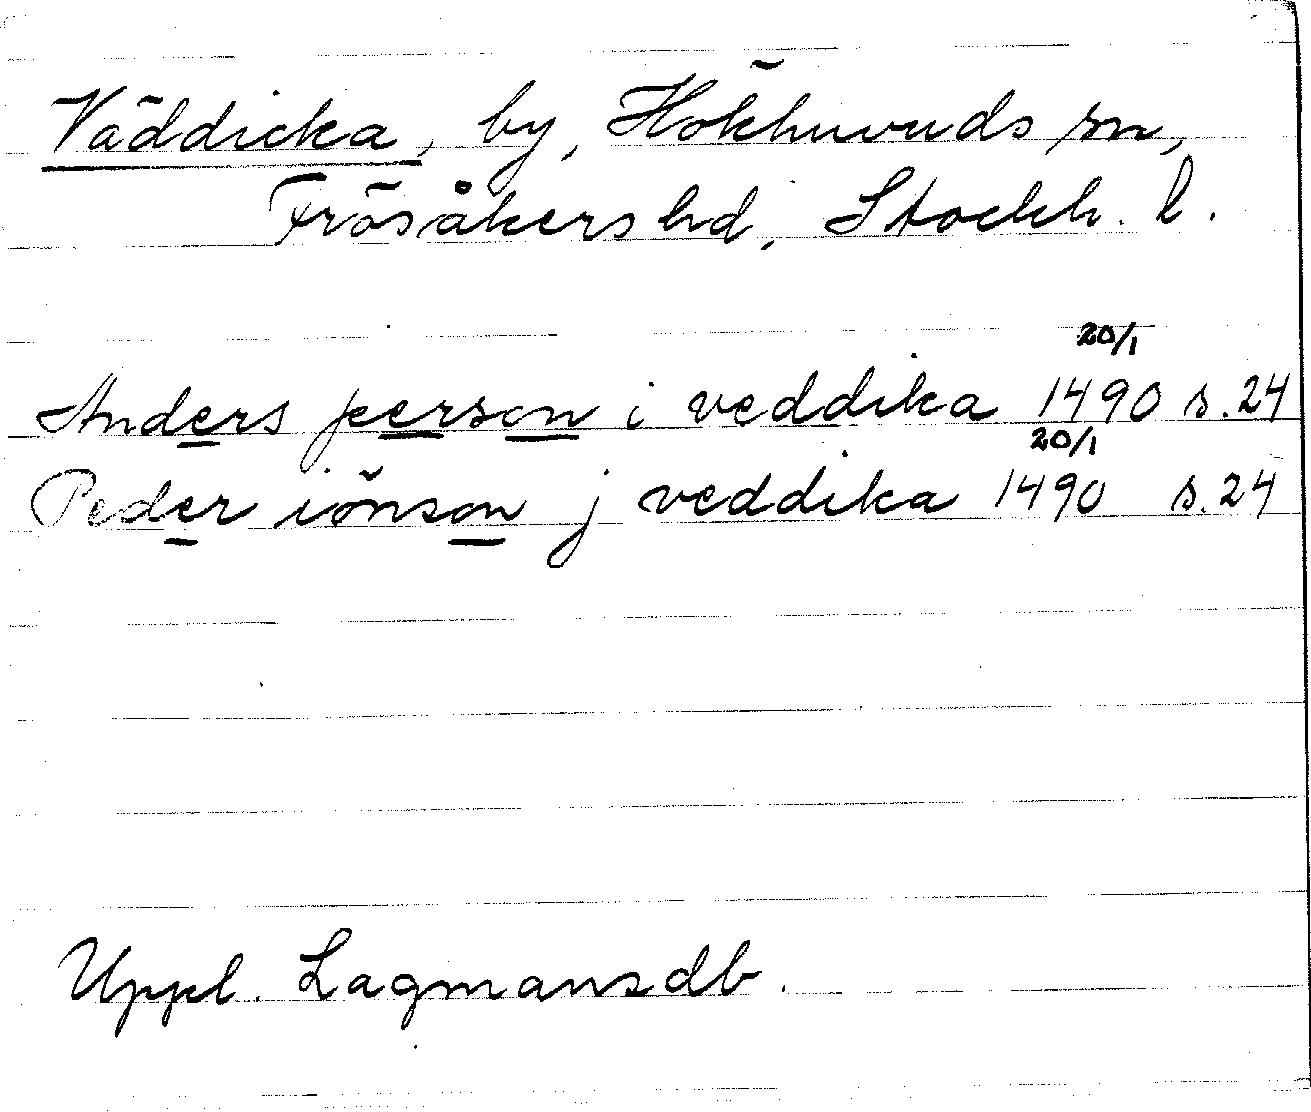 Väddicka, by, Hökhuvuds sn,
Frösåkers hd, Stockh. l.
20/1
Anders peerson i veddika 1490 s. 24
20/1
Peder iönson j veddika 1490 s. 24
Uppl. Lagmansdb.